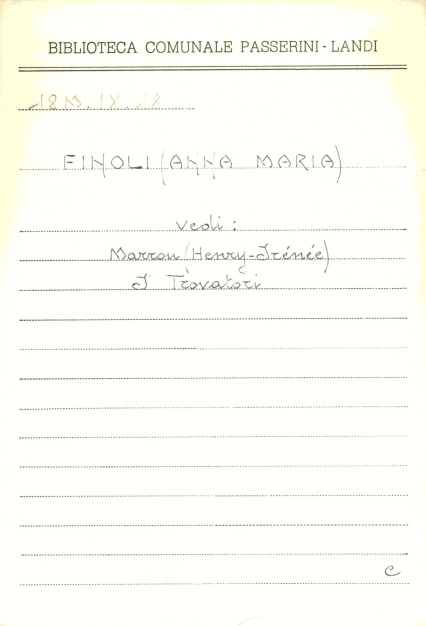 BIBLIOTECA COMUNALE PASSERINI - LANDI
12 M. IX. 18
FINOLI (ANNA MARIA)
vedi :
Marrou (Henry-Irénée)
I Trovatori
C